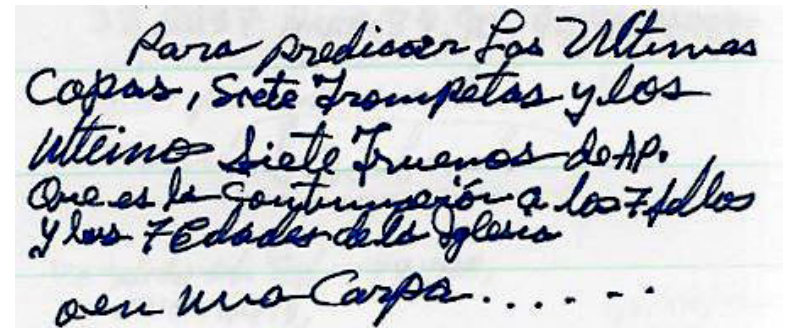 Para predicar Las Ultimas
Copas, Siete Trompetas y los
Ulteimos Siete Truenos de AP.
Que es la Continuación a los 7 Sellos
y las 7 Edades de la Iglesia
o en una Carpa......